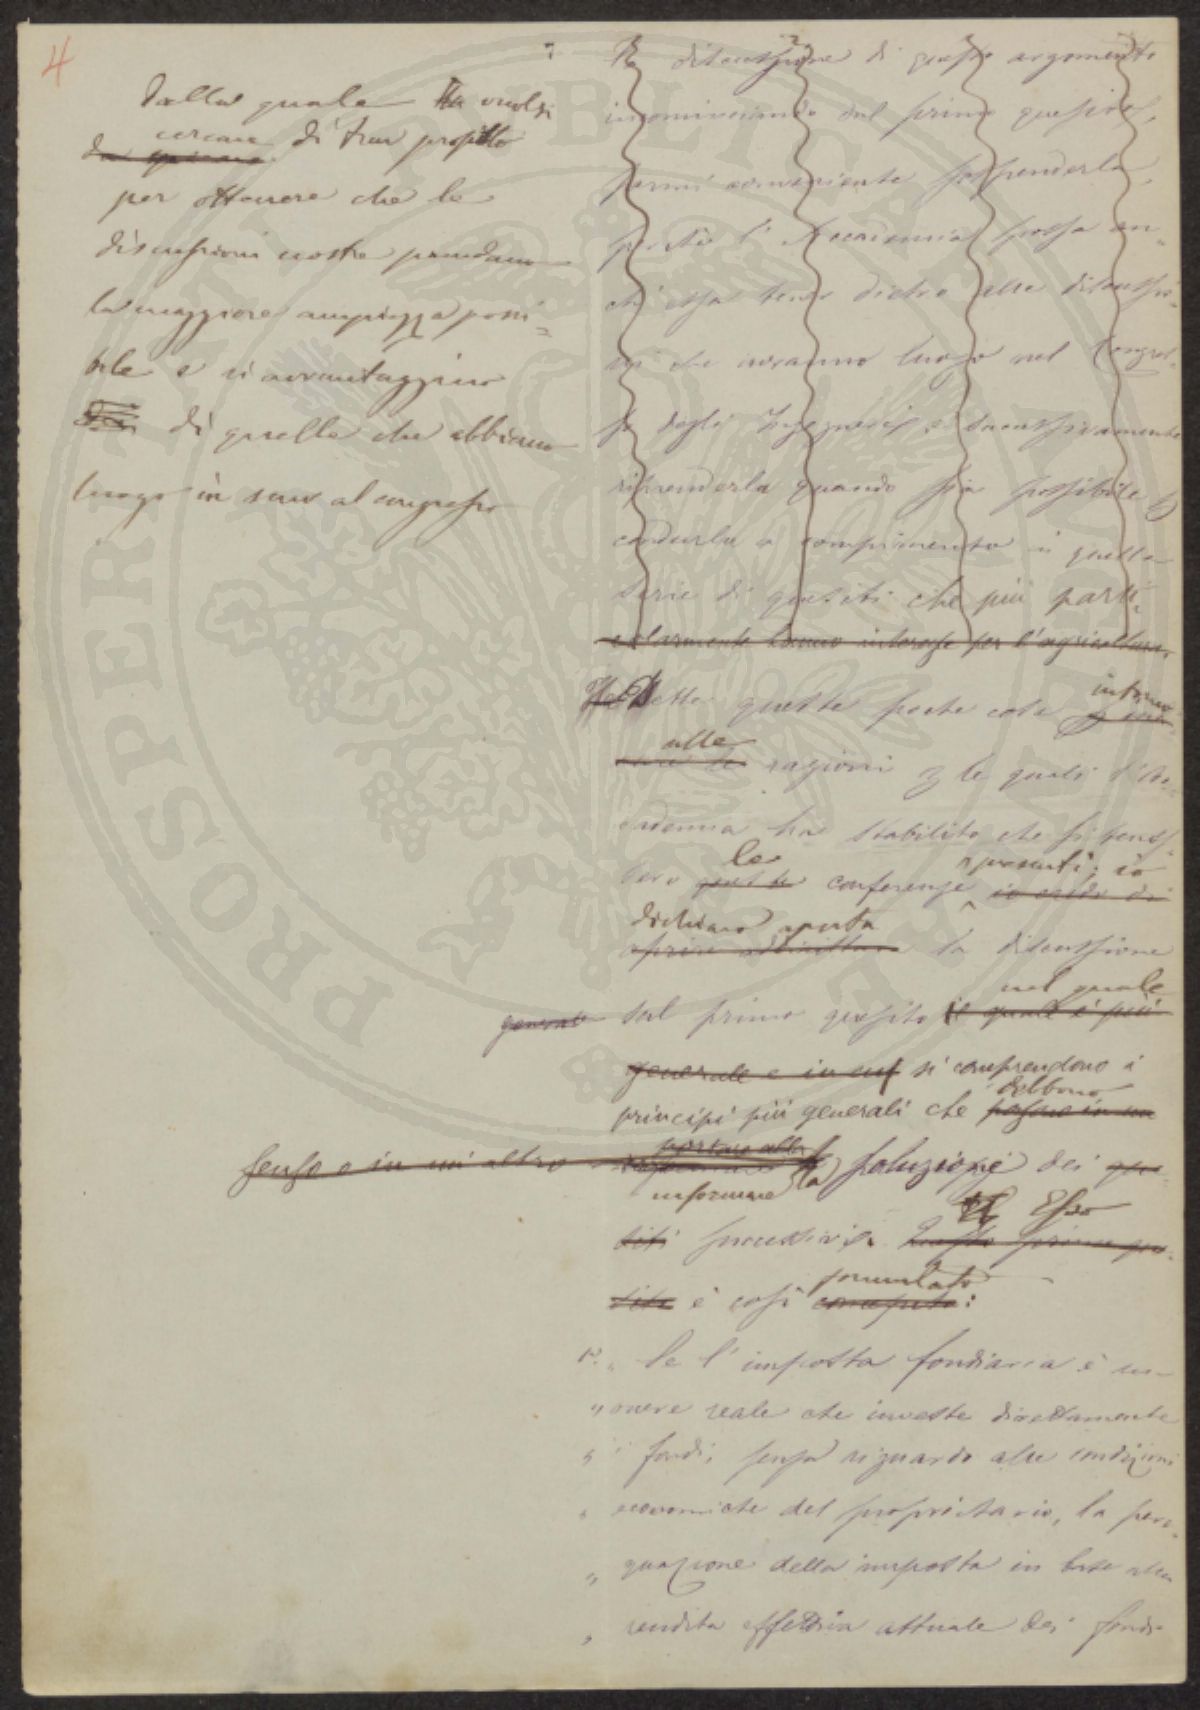 4
dalla quale ha vuolsi
cercare di trar profitto
per ottenere che le
discussioni nostre prendano
la maggiore ampiezza possi=
bile e si avvantaggino
di quelle che abbiano
luogo in seno al congresso
La discussione di questo argomento
incominciando dal primo quesito,
parmi conveniente sospenderla,
perchè l'Accademia possa an=
ch'essa tener dietro alle discussio=
ni che avranno luogo nel Congres=
so degli Ingegneri, e successivamente
riprenderla quando sia possibile
condurla a compimento in quella
serie di quesiti che più parti=
colarmente hanno interesse per l'agricoltura.
Dette queste poche cose intorno
alle
ragioni per le quali l'Ac=
cademia ha stabilito che si tenes=
le presenti; io
sero queste conferenze io credo di
dichiaro aperta
aprire addirittura la discussione
nel quale
generale sul primo quesito il quale è più
generale e in cui si comprendono i
debbono
principi più generali che possono in un
portare alla
senso o in un altro la soluzione dei que=
informare
Esso
siti successivi. Questo primo que=
formulato
sito è così concepito:
1°. „ Se l'imposta fondiaria è un
„ onere reale che investe direttamente
„ i fondi, senza riguardo alle condizioni
„ economiche del proprietario, la pere=
„ quazione della imposta in base alla
„ rendita effettiva attuale dei fondi
PROSPERITÀ PUBLICA